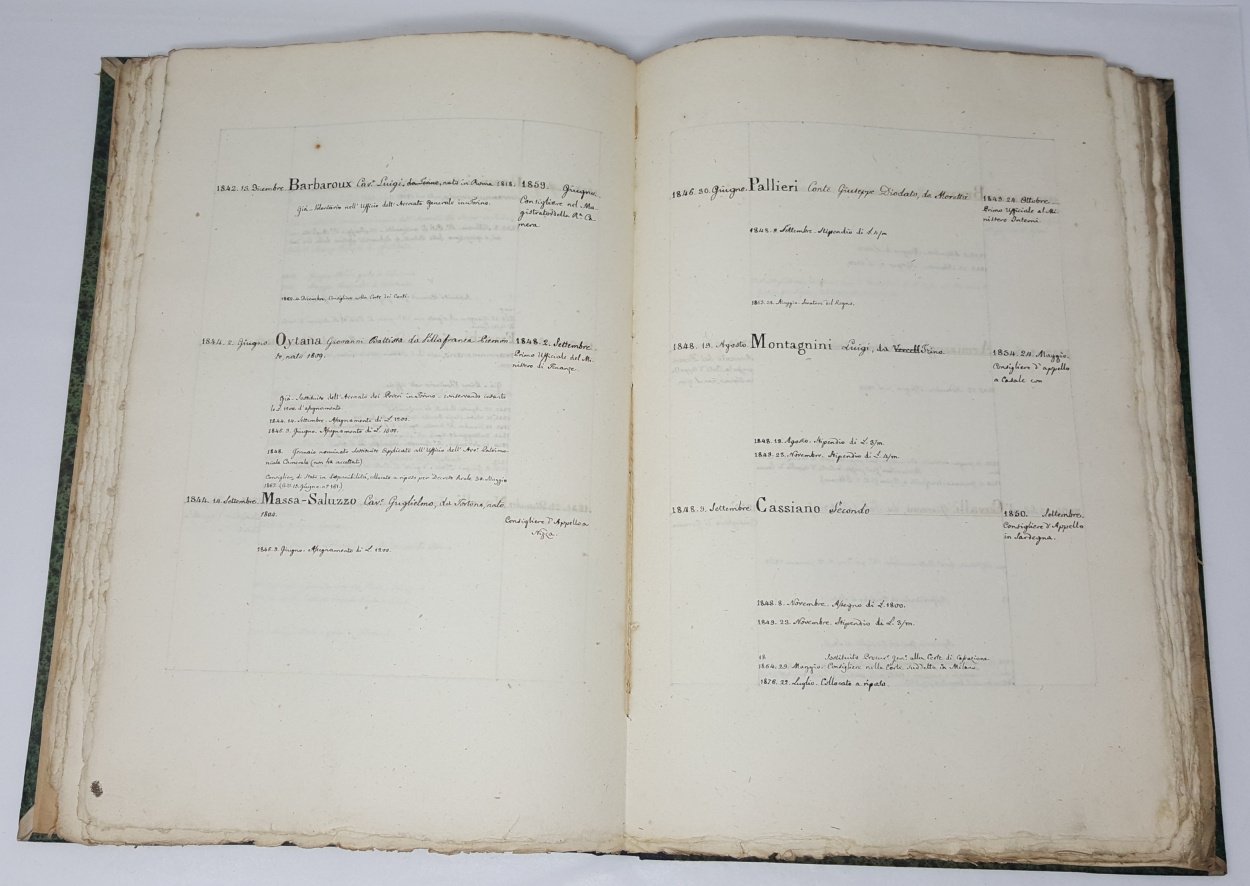 1842. 13. Dicembre. Barbaroux Cav.e Luigi, da Torino, nato in Roma 1818.
Già Volontario nell'Ufficio dell'Avvocato Generale in Torino.
1859. Giugno.
Consigliere nel Ma-
gistrato della R.a Ca-
mera
Dicembre, Consigliere alla Corte dei Conti.
1844. 2. Giugno. Oytana Giovanni Battista da Villafranca Piemon-
te, nato 1809.
1848. 2. Settembre.
Primo Ufficiale del Mi-
nistero di Finanze.
Già Sostituito dell'Avvocato dei Poveri in Torino - conservando
d'assegnamento
1844. 14. Settembre. Assegnamento di L. 1200.
1846. 9. Giugno. Assegnamento di L. 1800.
1848. Gennaio nominato Sostituito Applicato all'Ufficio dell'Avv.o Patrimo-
niale Camerale (non ha accettato)
Consigliere di Stato in disponibilità, collocato a riposo per Decreto Reale 30. Maggio
1867. Giugno n.o 161)
1844. 14. Settembre. Massa-Saluzzo Cav.e Guglielmo, da Tortona, nato
Consigliere d'Appello a
Nizza.
1846. 9. Giugno. Assegnamento di L. 1200.
1846. 30. Giugno. Pallieri Conte Giuseppe Diodato, da Moretta
1849. 24. Ottobre.
Primo Ufficiale al Mi-
nistero Interni
1848. 9. Settembre. Stipendio di L. 4/m
Maggio. Senatore del Regno.
1848. 19. Agosto. Montagnini Luigi, da Vercelli Trino
1854. 24. Maggio.
Consigliere d'appello
a Casale con
1848. 19. Agosto. Stipendio di L. 3/m.
1849. 23. Novembre. Stipendio di L. 4/m.
1848. 9. Settembre Cassiano Secondo
1850. Settembre.
Consigliere d'Appello
in Sardegna.
1848. 8. Novembre. Assegno di L. 1800.
1849. 23. Novembre. Stipendio di L. 3/m.
18 Sostituito Procur.e Gen.e alla Corte di Cassazione
1864. 29. Maggio. Consigliere nella Corte suddetta in Milano
1876. 23. Luglio. Collocato a riposo.